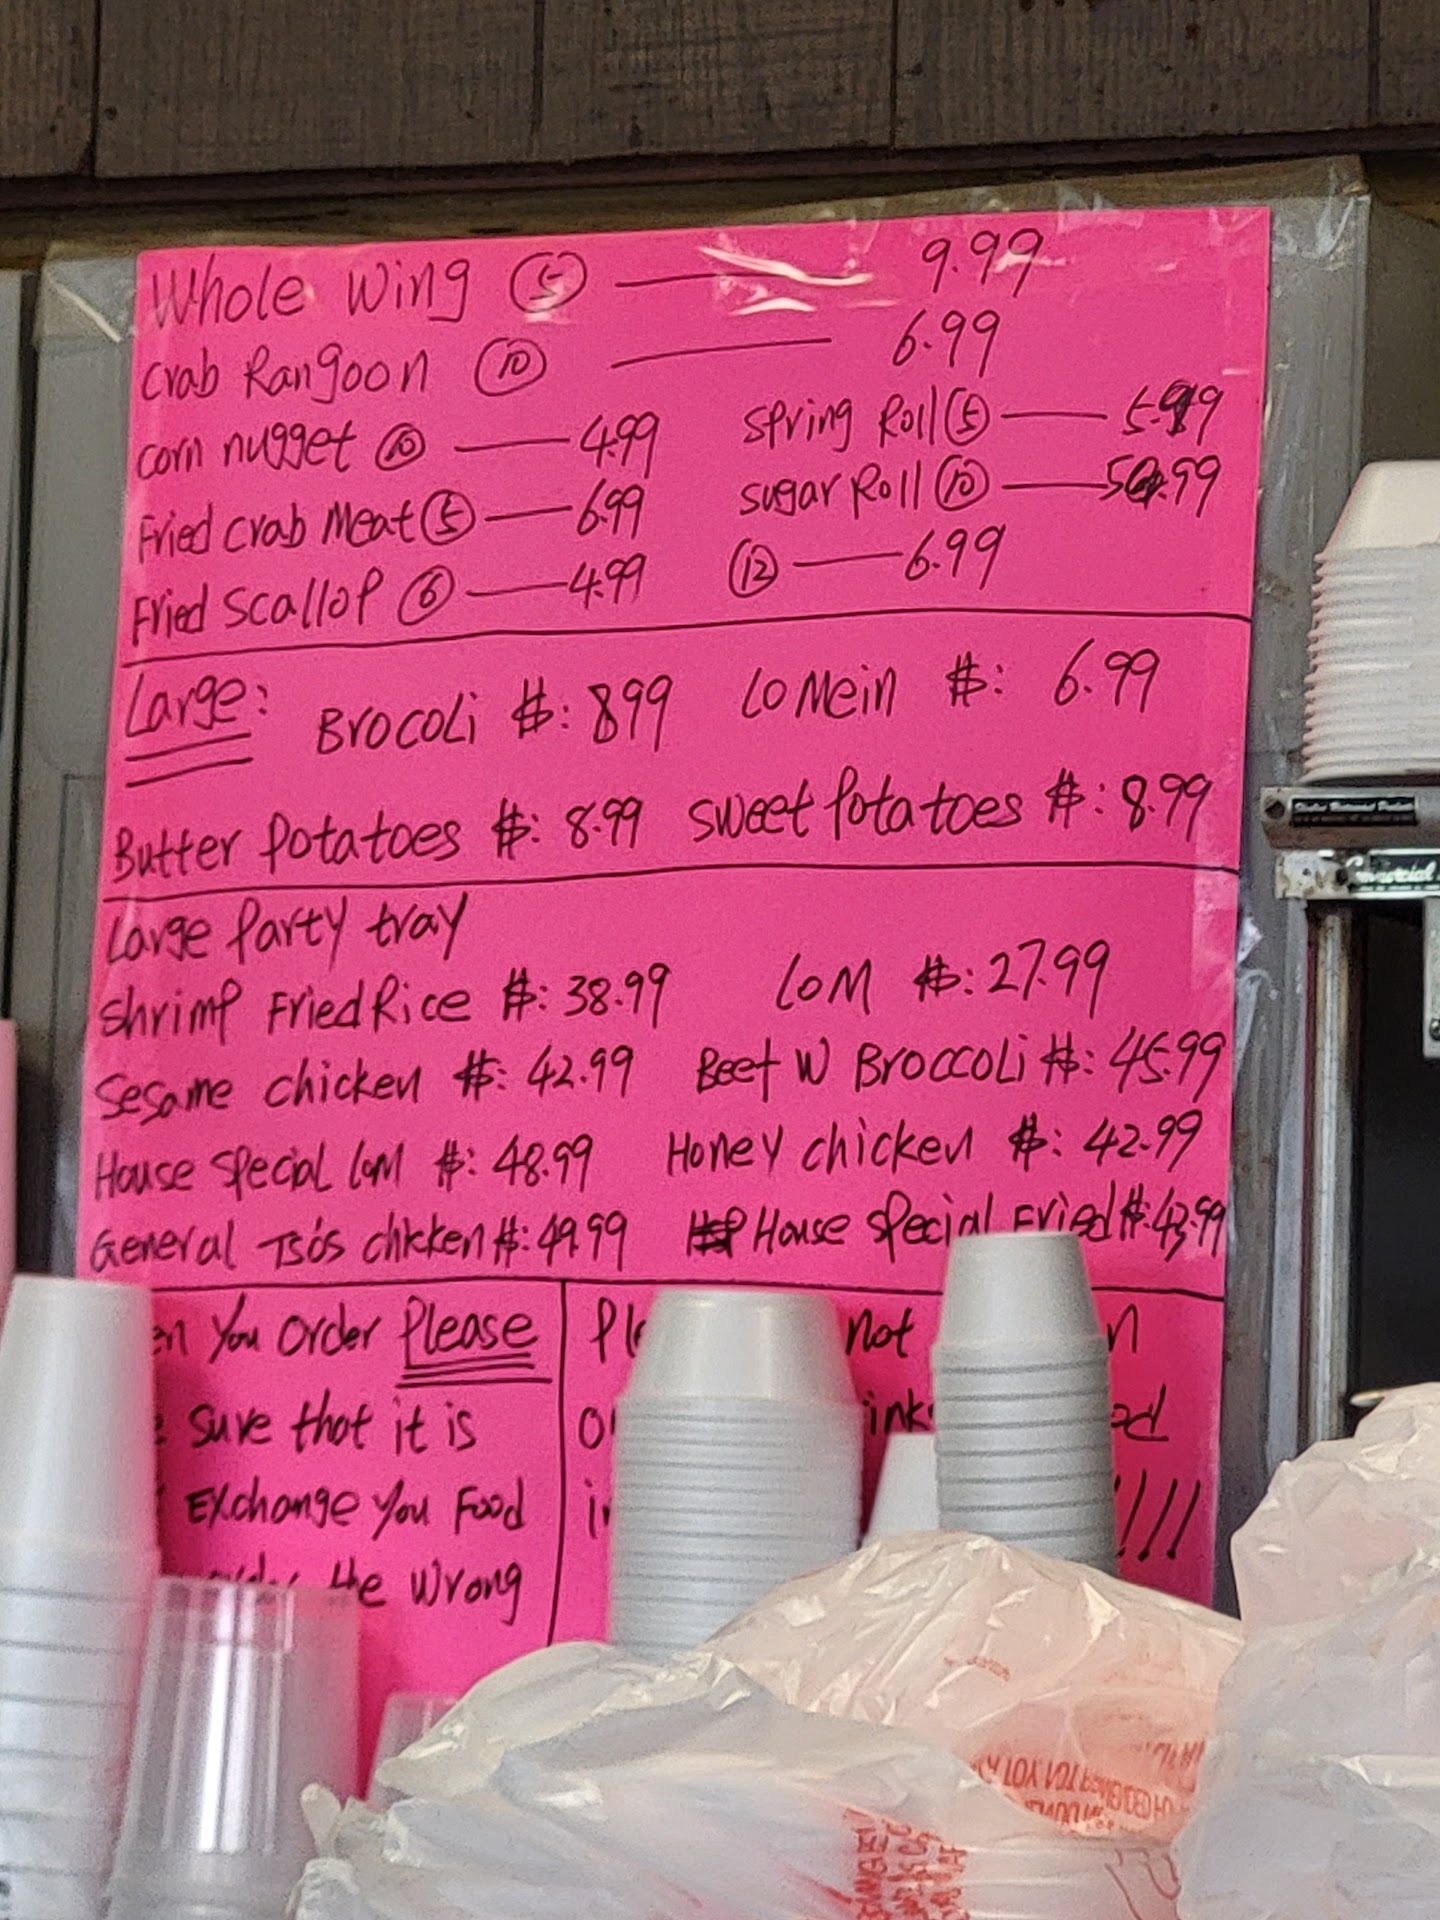 Whole Wing ⑤ —— 9.99
Crab Rangoon ⑩ —— 6.99
corn nugget ⑩ —— 4.99
Spring Roll ⑤ —— 5.99
Fried Crab Meat ⑤ —— 6.99
sugar Roll ⑩ —— 5.99
Fried Scallop ⑥ —— 4.99
⑫ —— 6.99
Large:
Brocoli $: 8.99
Lo Mein $: 6.99
Butter Potatoes $: 8.99
Sweet Potatoes $: 8.99
Large Party tray
Shrimp Fried Rice $: 38.99
LOM $: 27.99
Sesame chicken $: 42.99
Beef W Broccoli $: 45.99
House Special LOM $: 48.99
Honey chicken $: 42.99
General Tso's chicken $: 49.99
House Special Fried $: 43.99
You Order Please
Sure that it is
Exchange You Food
the Wrong
not
commercial